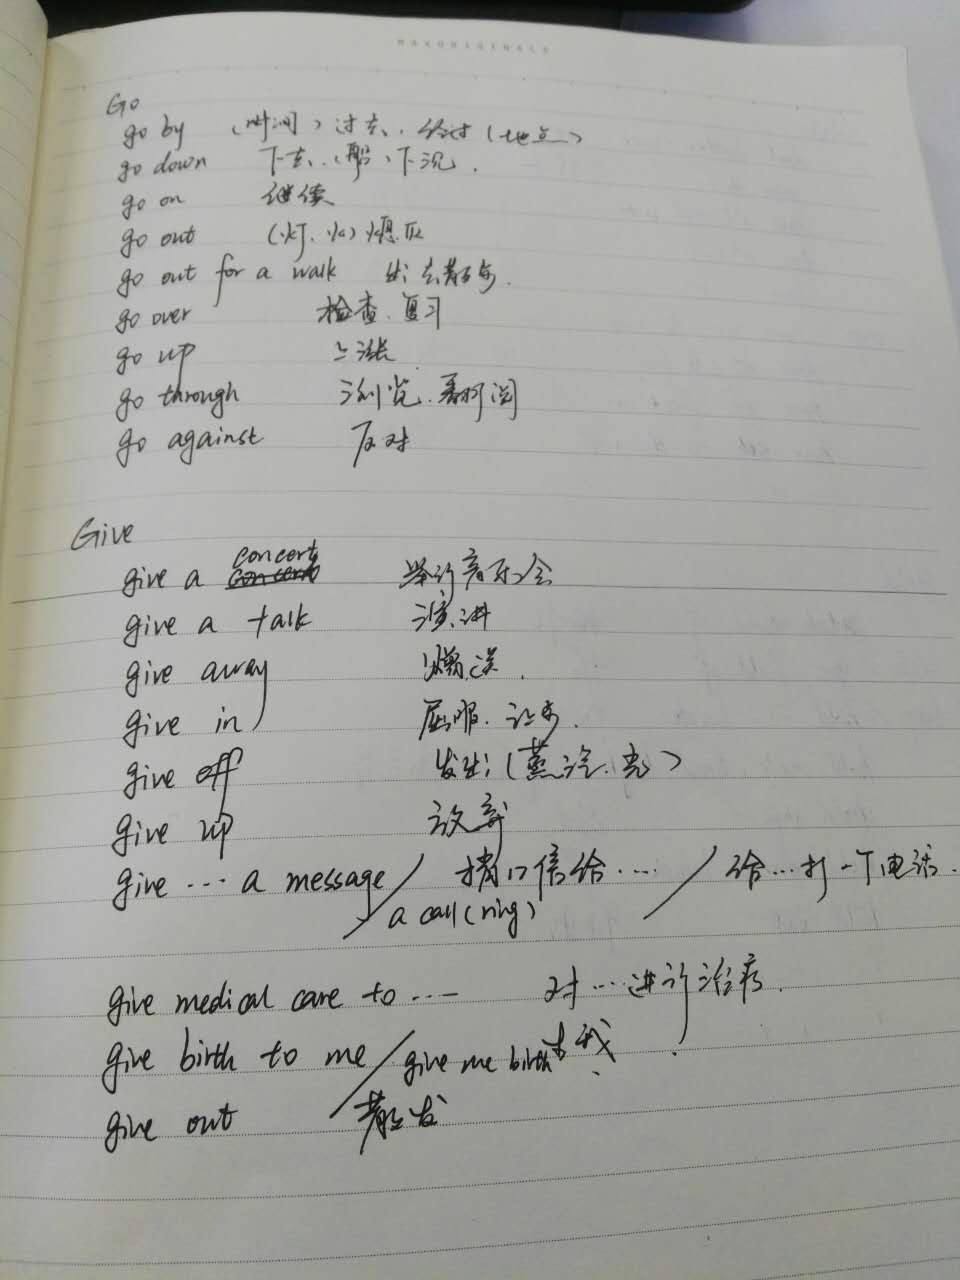 Go
go by （时间）过去、经过（地点）
go down 下去、（船）下沉.
go on 继续
go out （灯、火）熄灭
go out for a walk 出去散步.
go over 检查.复习
go up 上涨
go through 浏览.翻阅
go against 反对
Give
concert
give a 举行音乐会
give a talk 演讲
give away 赠送.
give in 屈服.让步.
give off 发出（蒸汽.光）
give up 放弃
give ... a message / 捎口信给... / 给...打一个电话.
a call (ring)
give medical care to ... 对...进行治疗.
give birth to me / give me birth 生我.
give out 散发